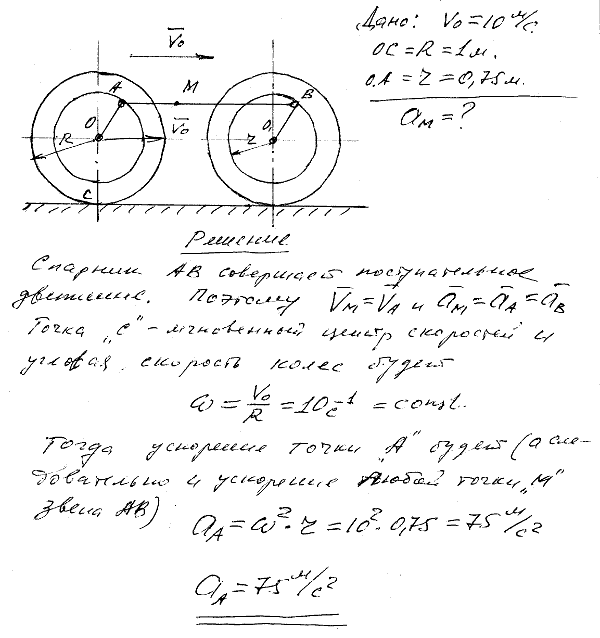 V̅o
Дано: Vo = 10 м/с
OC = R = 1 м.
OA = r = 0,75 м.
aм = ?
A M B
O V̅o O₁
R r
C
Решение
Спарник AB совершает поступательное
движение. Поэтому V̅м = V̅A и a̅м = a̅A = a̅B
Точка „C" - мгновенный центр скоростей и
угловая скорость колес будет
ω = Vo/R = 10 c⁻¹ = const.
Тогда ускорение точки „A" будет (а сле-
довательно и ускорение любой точки „M"
звена AB)
aA = ω² · r = 10² · 0,75 = 75 м/с²
aA = 75 м/с²